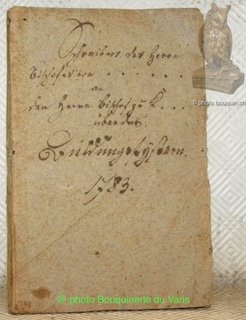 Schreiben des Herrn
Bischofes von . . . . . .
an
den Herrn Bischof zu K . . .
über das
Duldungssystem.
1783.
© photo Bouquinerie du Varis
© photo Bouquinerie du